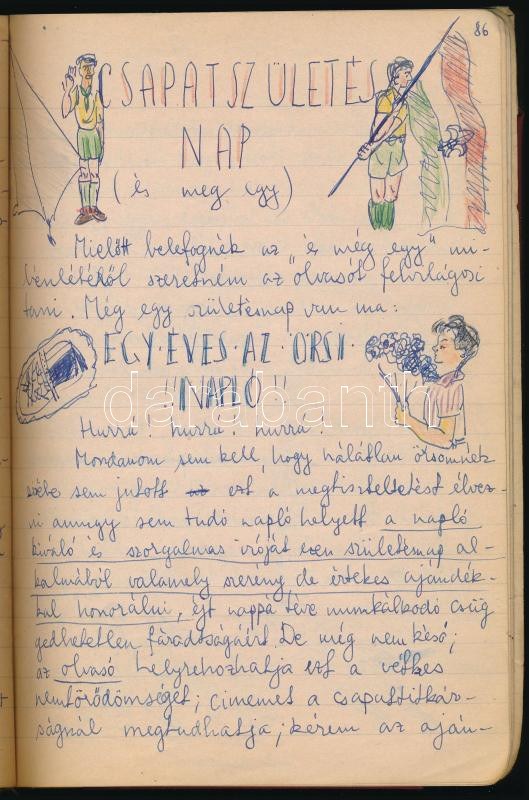 86
CSAPATSZÜLETÉS
NAP
(és meg egy)
Mielőtt belefognék az "és még egy" mi-
benlétéről szeretném az olvasót felvilágosi
tani. Még egy születésnap van ma:
EGY·ÉVES·AZ·ŐRSI·
"NAPLÓ"
Hurrá! hurrá! hurrá!
Mondanom sem kell, hogy hálátlan őrsömnek
eszébe sem jutott ezt a megtiszteltetést élvez-
ni amugy sem tudó napló helyett a napló
kiváló és szorgalmas iróját ezen születésnap al-
kalmából valamely szerény, de értékes ajándék-
kal honorálni, éjt nappá téve munkálkodó csüg
gedhetetlen fáradtságáért. De még nem késő;
az olvasó helyrehozhatja ezt a vétkes
nemtörődömséget; cimemet a csapattitkár-
ságnál megtudhatja; kérem az aján-
darabanth